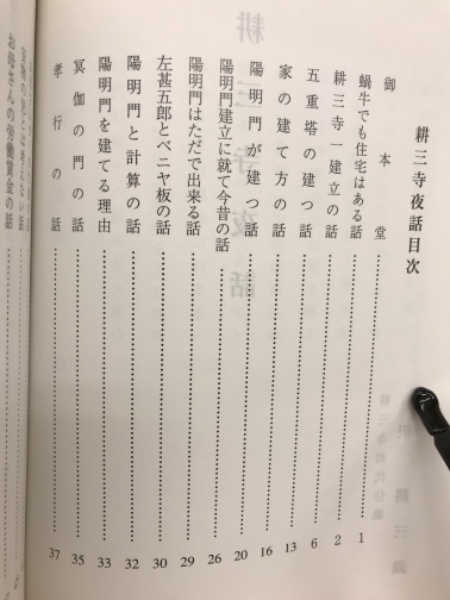 耕三寺夜話目次
御本堂……………………1
蝸牛でも住宅はある話……………………2
耕三寺一建立の話……………………6
五重塔の建つ話……………………13
家の建て方の話……………………16
陽明門が建つ話……………………20
陽明門建立に就て今昔の話……………………26
陽明門はただで出来る話……………………29
左甚五郎とベニヤ板の話……………………30
陽明門と計算の話……………………32
陽明門を建てる理由……………………33
冥伽の門の話……………………35
孝行の話……………………37
お母さんの労働賃金の話